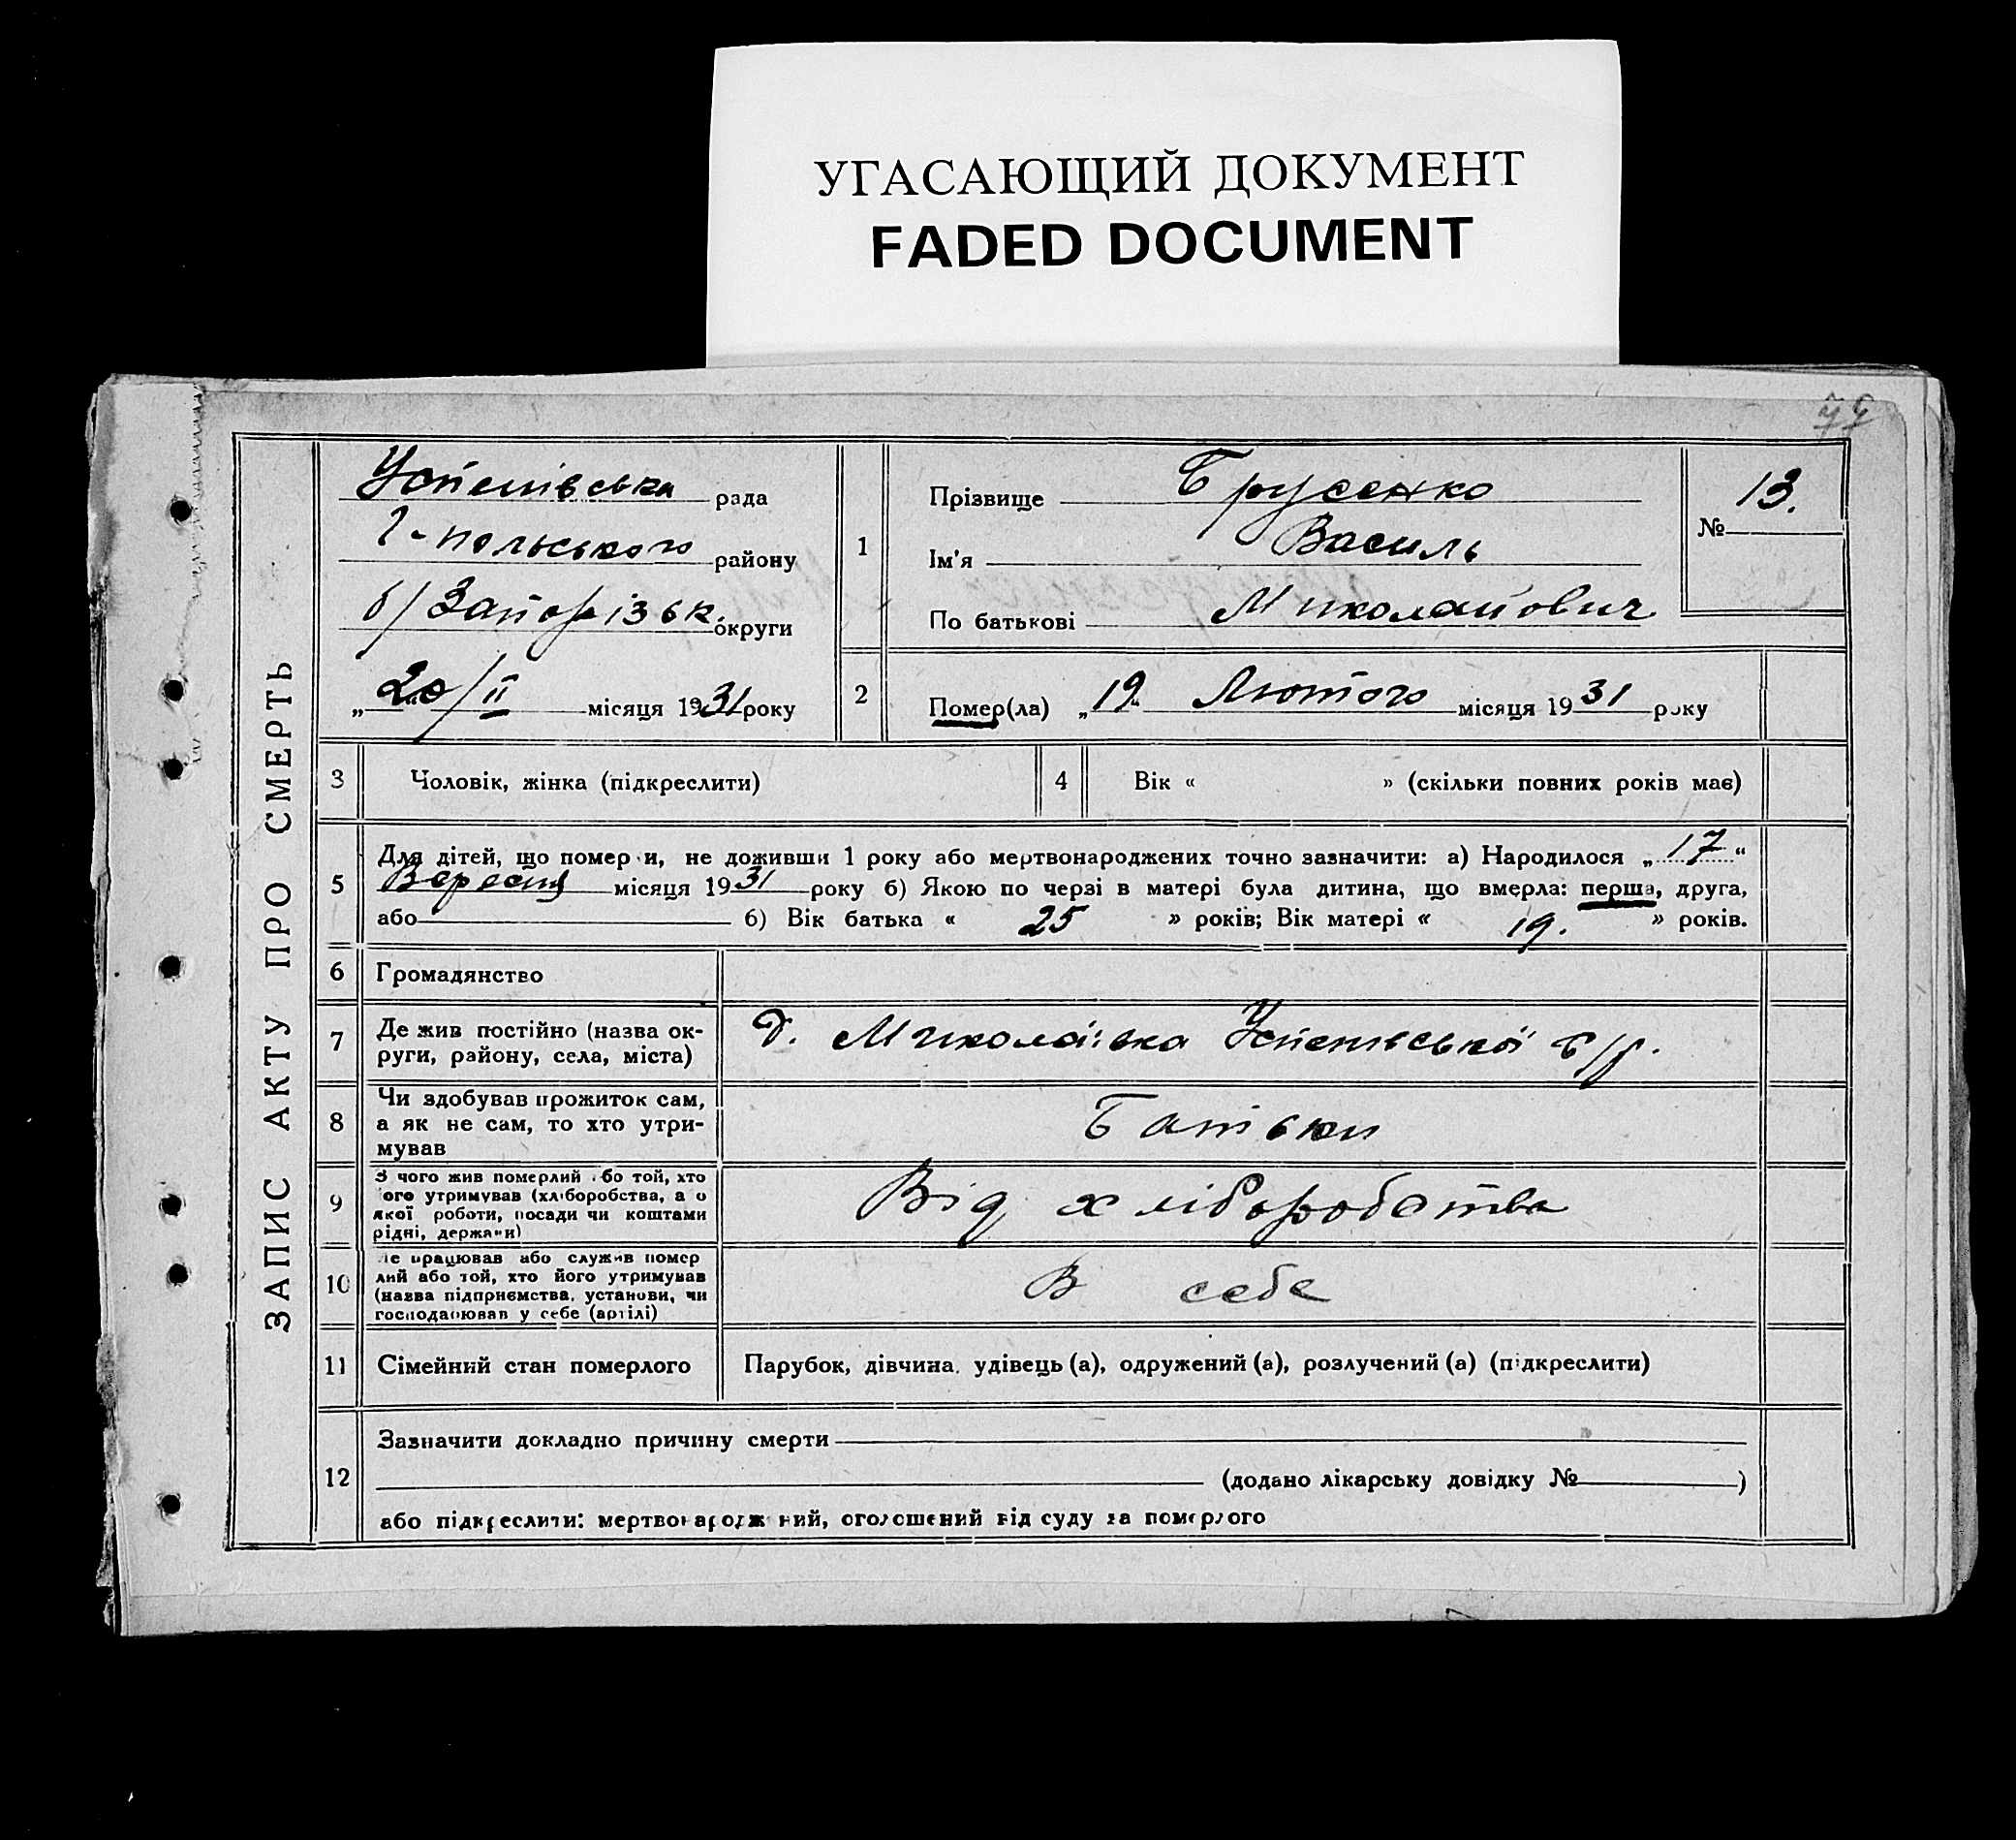 УГАСАЮЩИЙ ДОКУМЕНТ
FADED DOCUMENT
ЗАПИС АКТУ ПРО СМЕРТЬ
Успенівська рада
Г-польського району
б/Запоріз ьк. округи
„20/II місяця 1931 року
1
Прізвище Брусенко
Ім'я Василь
По батькові Миколайович
№ 13.
2
Помер(ла) „19" Лютого місяця 1931 року
3 Чоловік, жінка (підкреслити)
4 Вік « » (скільки повних років має)
5
Для дітей, що померли, не доживши 1 року або мертвонароджених точно зазначити: а) Народилося „17“
Вересня місяця 1931 року б) Якою по черзі в матері була дитина, що вмерла: перша, друга,
або б) Вік батька « 25 » років; Вік матері « 19. » років.
6 Громадянство
7
Де жив постійно (назва ок-
руги, району, села, міста)
д. Миколаївка Успенівської с/р.
8
Чи здобував прожиток сам,
а як не сам, то хто утри-
мував
Батьки
9
З чого жив померлий або той, хто
його утримував (хліборобства, або
якої роботи, посади чи коштами
рідні, держави)
Від хліборобства
10
Де працював або служив помер
лий або той, хто його утримував
(назва підприємства, установи, чи
господарював у себе (артілі)
В себе
11 Сімейний стан померлого
Парубок, дівчина, удівець (а), одружений (а), розлучений (а) (підкреслити)
12
Зазначити докладно причину смерти
(додано лікарську довідку № )
або підкреслити: мертвонароджений, оголошений від суду за померлого